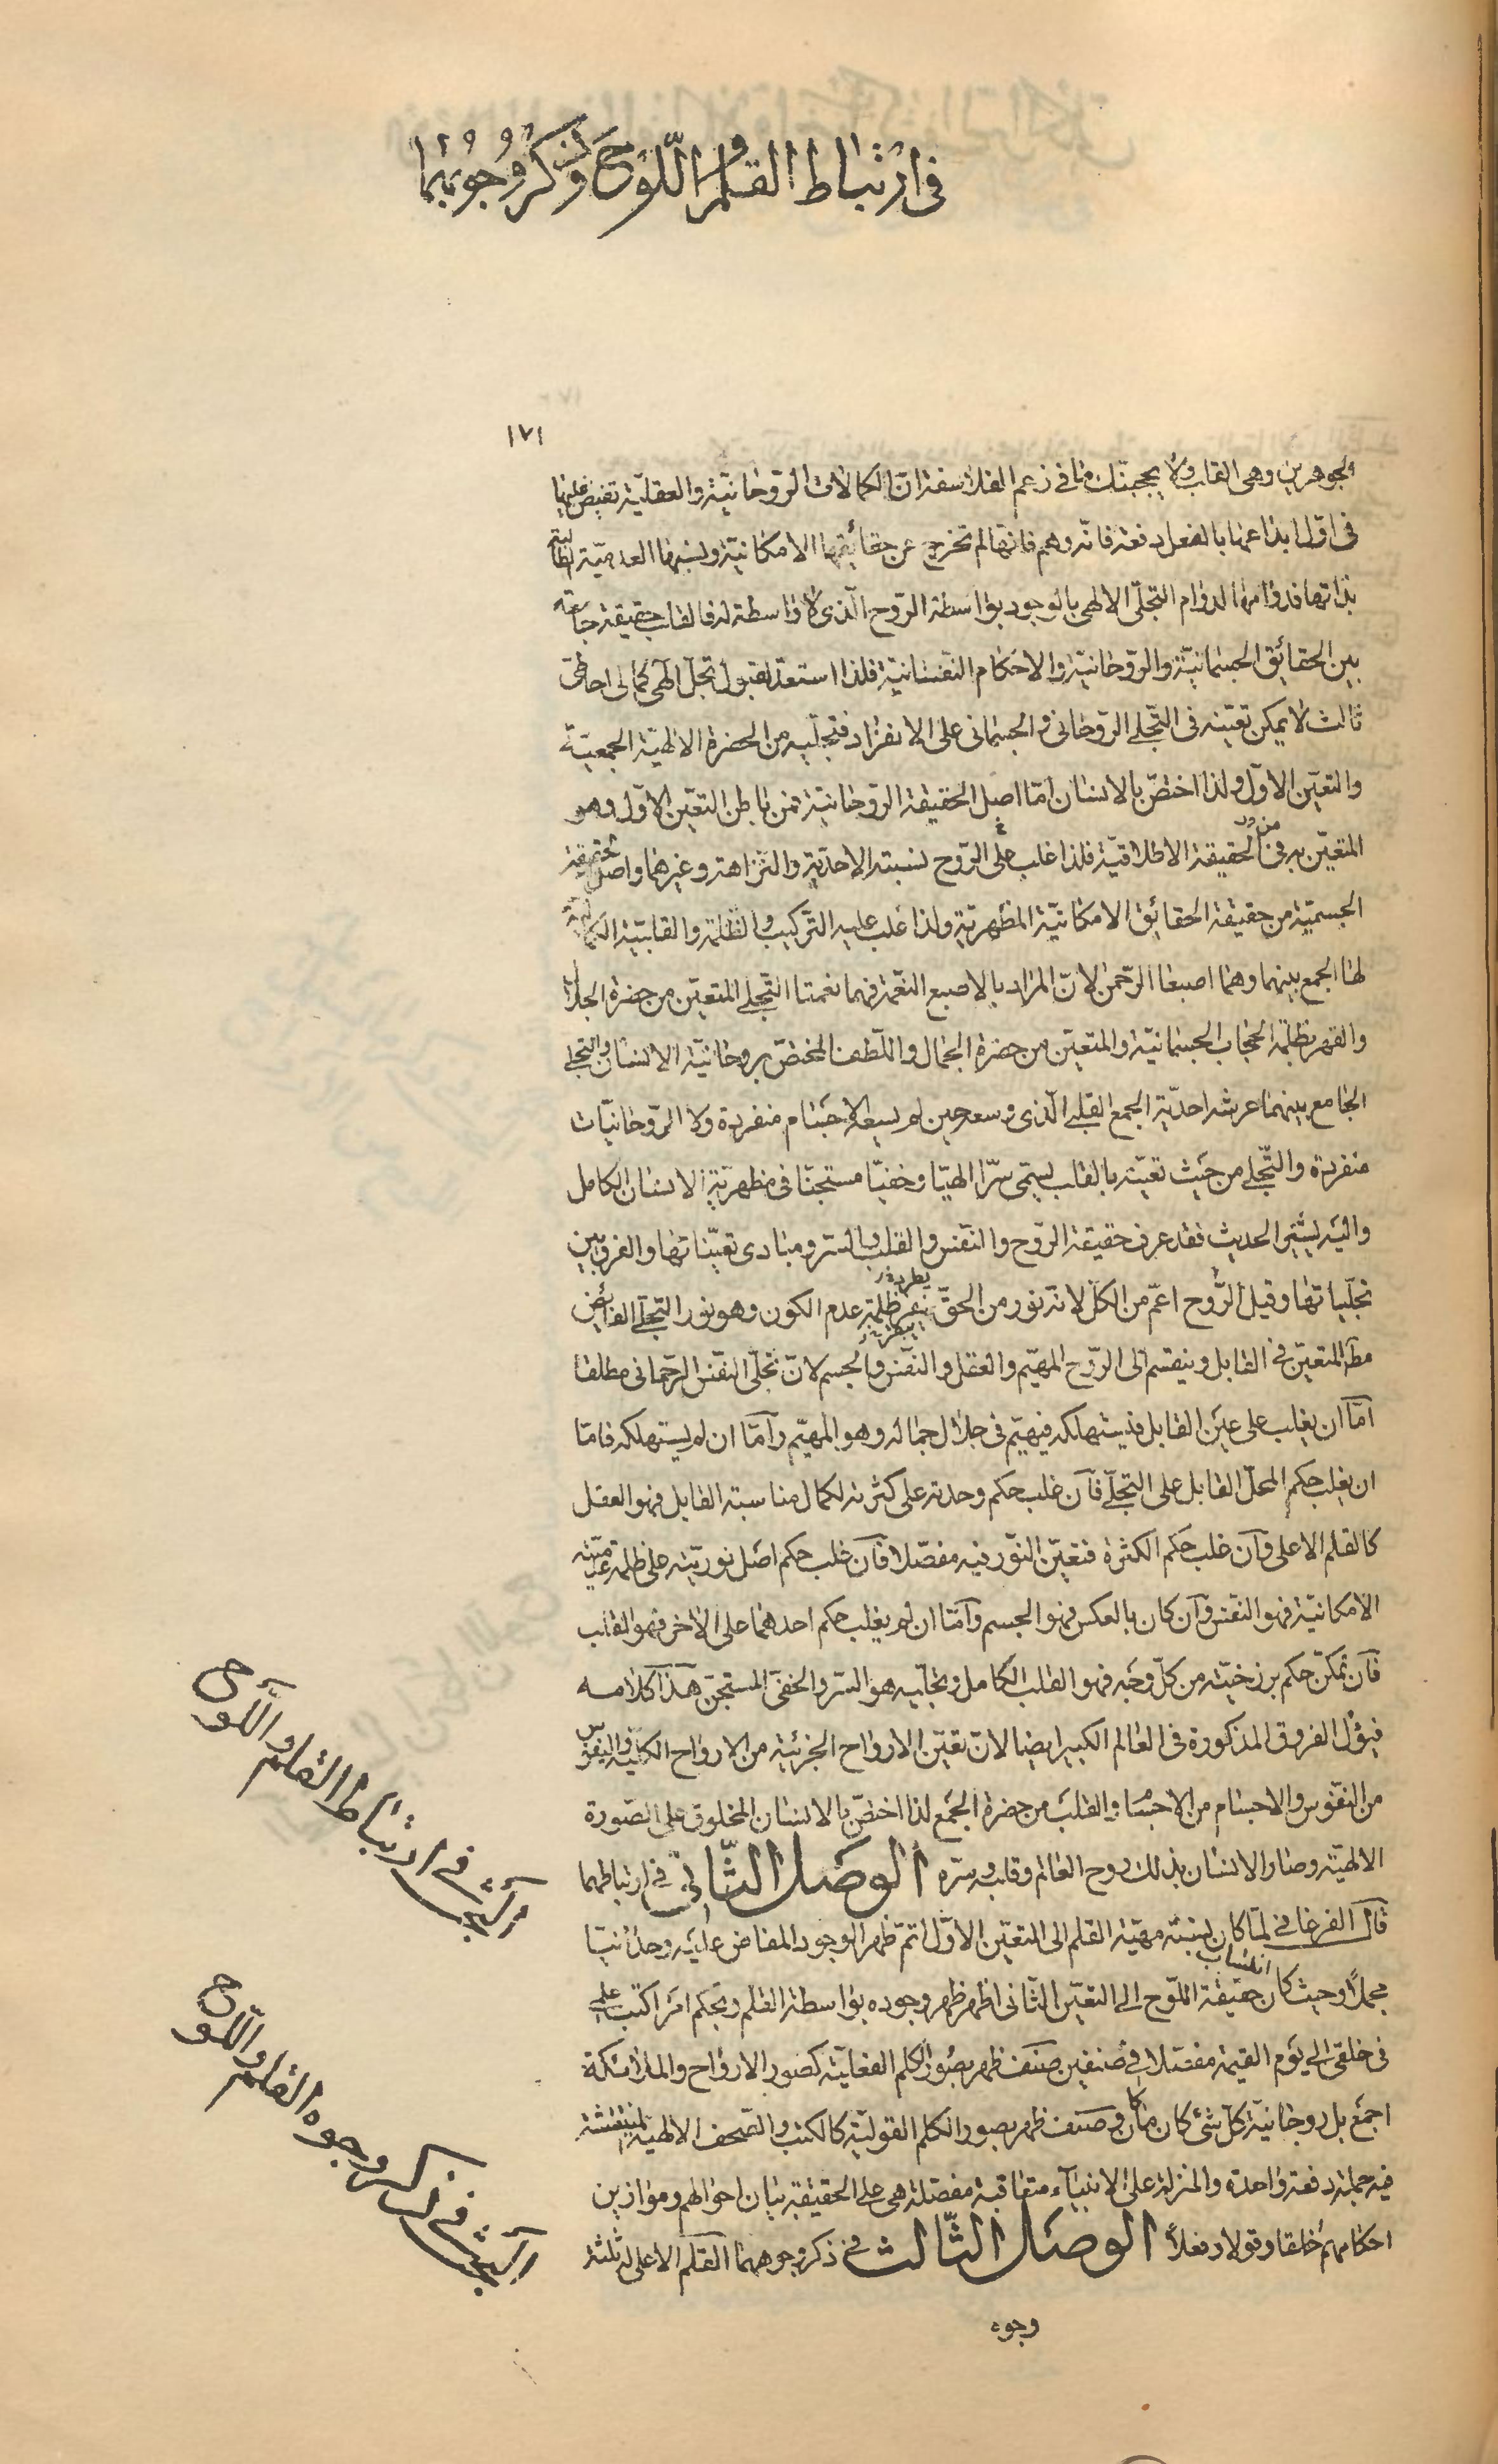 في ارتباط القلم واللوح وذكر وجوههما
١٧١
الجوهرين وهى القلب ولا يحجبنك ما فى زعم الفلاسفة ان الكمالات الروحانية والعقلية تفيض عليها
فى اول ابداعها بالفعل دفعة فانه وهم فانها لم تخرج عن حقائقها الامكانية ونسبها العدمية القابلية
بذاتها فدوامها لدوام التجلى الالهى بالوجود بواسطة الروح الذى لا واسطة له فالقلب حقيقة جامعة
بين الحقائق الجسمانية والروحانية والاحكام النفسانية فلذا استعد لقبول تجل الهى كمالى احاطى
ثالث لا يمكن تعينه فى التجلى الروحانى والجسمانى على الانفراد فتجليه من الحضرة الالهية الجمعية
والتعين الاول ولذا اختص بالانسان اما اصل الحقيقة الروحانية فمن باطن التعين الاول وهو
المتعين به فى الحقيقة الاطلاقية فلذا غلب على الروح نسبته الاحدية والنزاهة وغيرهما واصل حقيقة
الجسمية من حقيقة الحقائق الامكانية المظهرية ولذا غلب عليه التركيب والظلمة والقابلية
لها الجمع بينهما وهما اصبعا الرحمن لان المراد بالاصبع النعمة فهما نعمتا التجلى المتعين من حضرة الجلال
والقهر بظلمة الحجاب الجسمانية والمتعين من حضرة الجمال واللطف المختص بروحانية الانسان والتجلى
الجامع بينهما عرشه احدية الجمع القلبى الذى وسعه حين لم يسعه الاجسام منفردة ولا الروحانيات
منفردة والتجلى من حيث تعينه بالقلب يسمى سرا الهيا وخفيا مستجنا فى مظهرية الانسان الكامل
واليه يشير الحديث فقد عرف حقيقة الروح والنفس والقلب والسر ومبادى تعيناتها والفرق بين
تجلياتها وقيل الروح اعم من الكل لانه نور من الحق ظلمة عدم الكون وهو نور التجلى الفائض
المتعين فى القابل وينقسم الى الروح المهيم والعقل والنفس والجسم لان تجلى النفس الرحمانى مطلقا
اما ان يغلب على عين القابل فيستهلكه فيهيم فى جلال جماله وهو المهيم واما ان لم يستهلكه فاما
ان يغلب حكم المحل القابل على التجلى فان غلب حكم وحدته على كثرته لكمال مناسبة القابل فهو العقل
كالقلم الاعلى وان غلب حكم الكثرة فتعين النور فيه مفصلا فان غلب حكم اصل نوريته على ظلمة عدميته
الامكانية فهو النفس وان كان بالعكس فهو الجسم واما ان لم يغلب حكم احدهما على الاخر فهو القلب
فان تمكن حكم برزخيته من كل وجه فهو القلب الكامل وتجليه هو السر والخفى المستجن هذا كلامه
فيؤل الفروق المذكورة فى العالم الكبير ايضا لان تعين الارواح الجزئية من الارواح الكلية والنفوس
من النفوس والاجسام من الاجسام والقلب من حضرة الجمع لذا اختص بالانسان المخلوق على الصورة
الالهية وصار الانسان بذلك روح العالم وقلبه وسره الوصل الثانى فى ارتباطهما
قال الفرغانى لما كان نسبة مهية القلم الى التعين الاول اتم ظهر الوجود المفاض عليه وحدانيا
مجملا وحيث كان انتساب حقيقة اللوح الى التعين الثانى اظهر ظهر وجوده بواسطة القلم وبحكم امر اكتب علمى
فى خلقى الى يوم القيمة مفصلا فى صنفين صنف ظهر بصور الكلم الفعلية كصور الارواح والملائكة
اجمع بل روحانية كل شئ كان ما كان وصنف ظهر بصور الكلم القولية كالكتب والصحف الالهية المنتقشة
فيه جملة دفعة واحدة والمنزلة على الانبياء متعاقبة مفصلة هى على الحقيقة بيان احوالهم وموازين
احكامهم خلقا وقولا وفعلا الوصل الثالث فى ذكر وجوههما القلم الاعلى له ثلثة
وجوه
البحث فى ارتباط القلم واللوح
البحث فى ذكر وجوه القلم واللوح